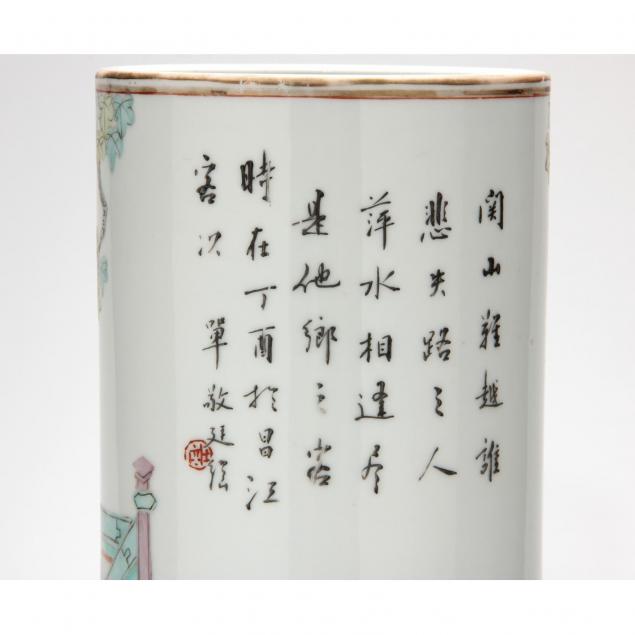 関山難越誰
悲失路之人
萍水相逢尽
是他鄉之客
時在丁酉於昌江
客次 單敬廷